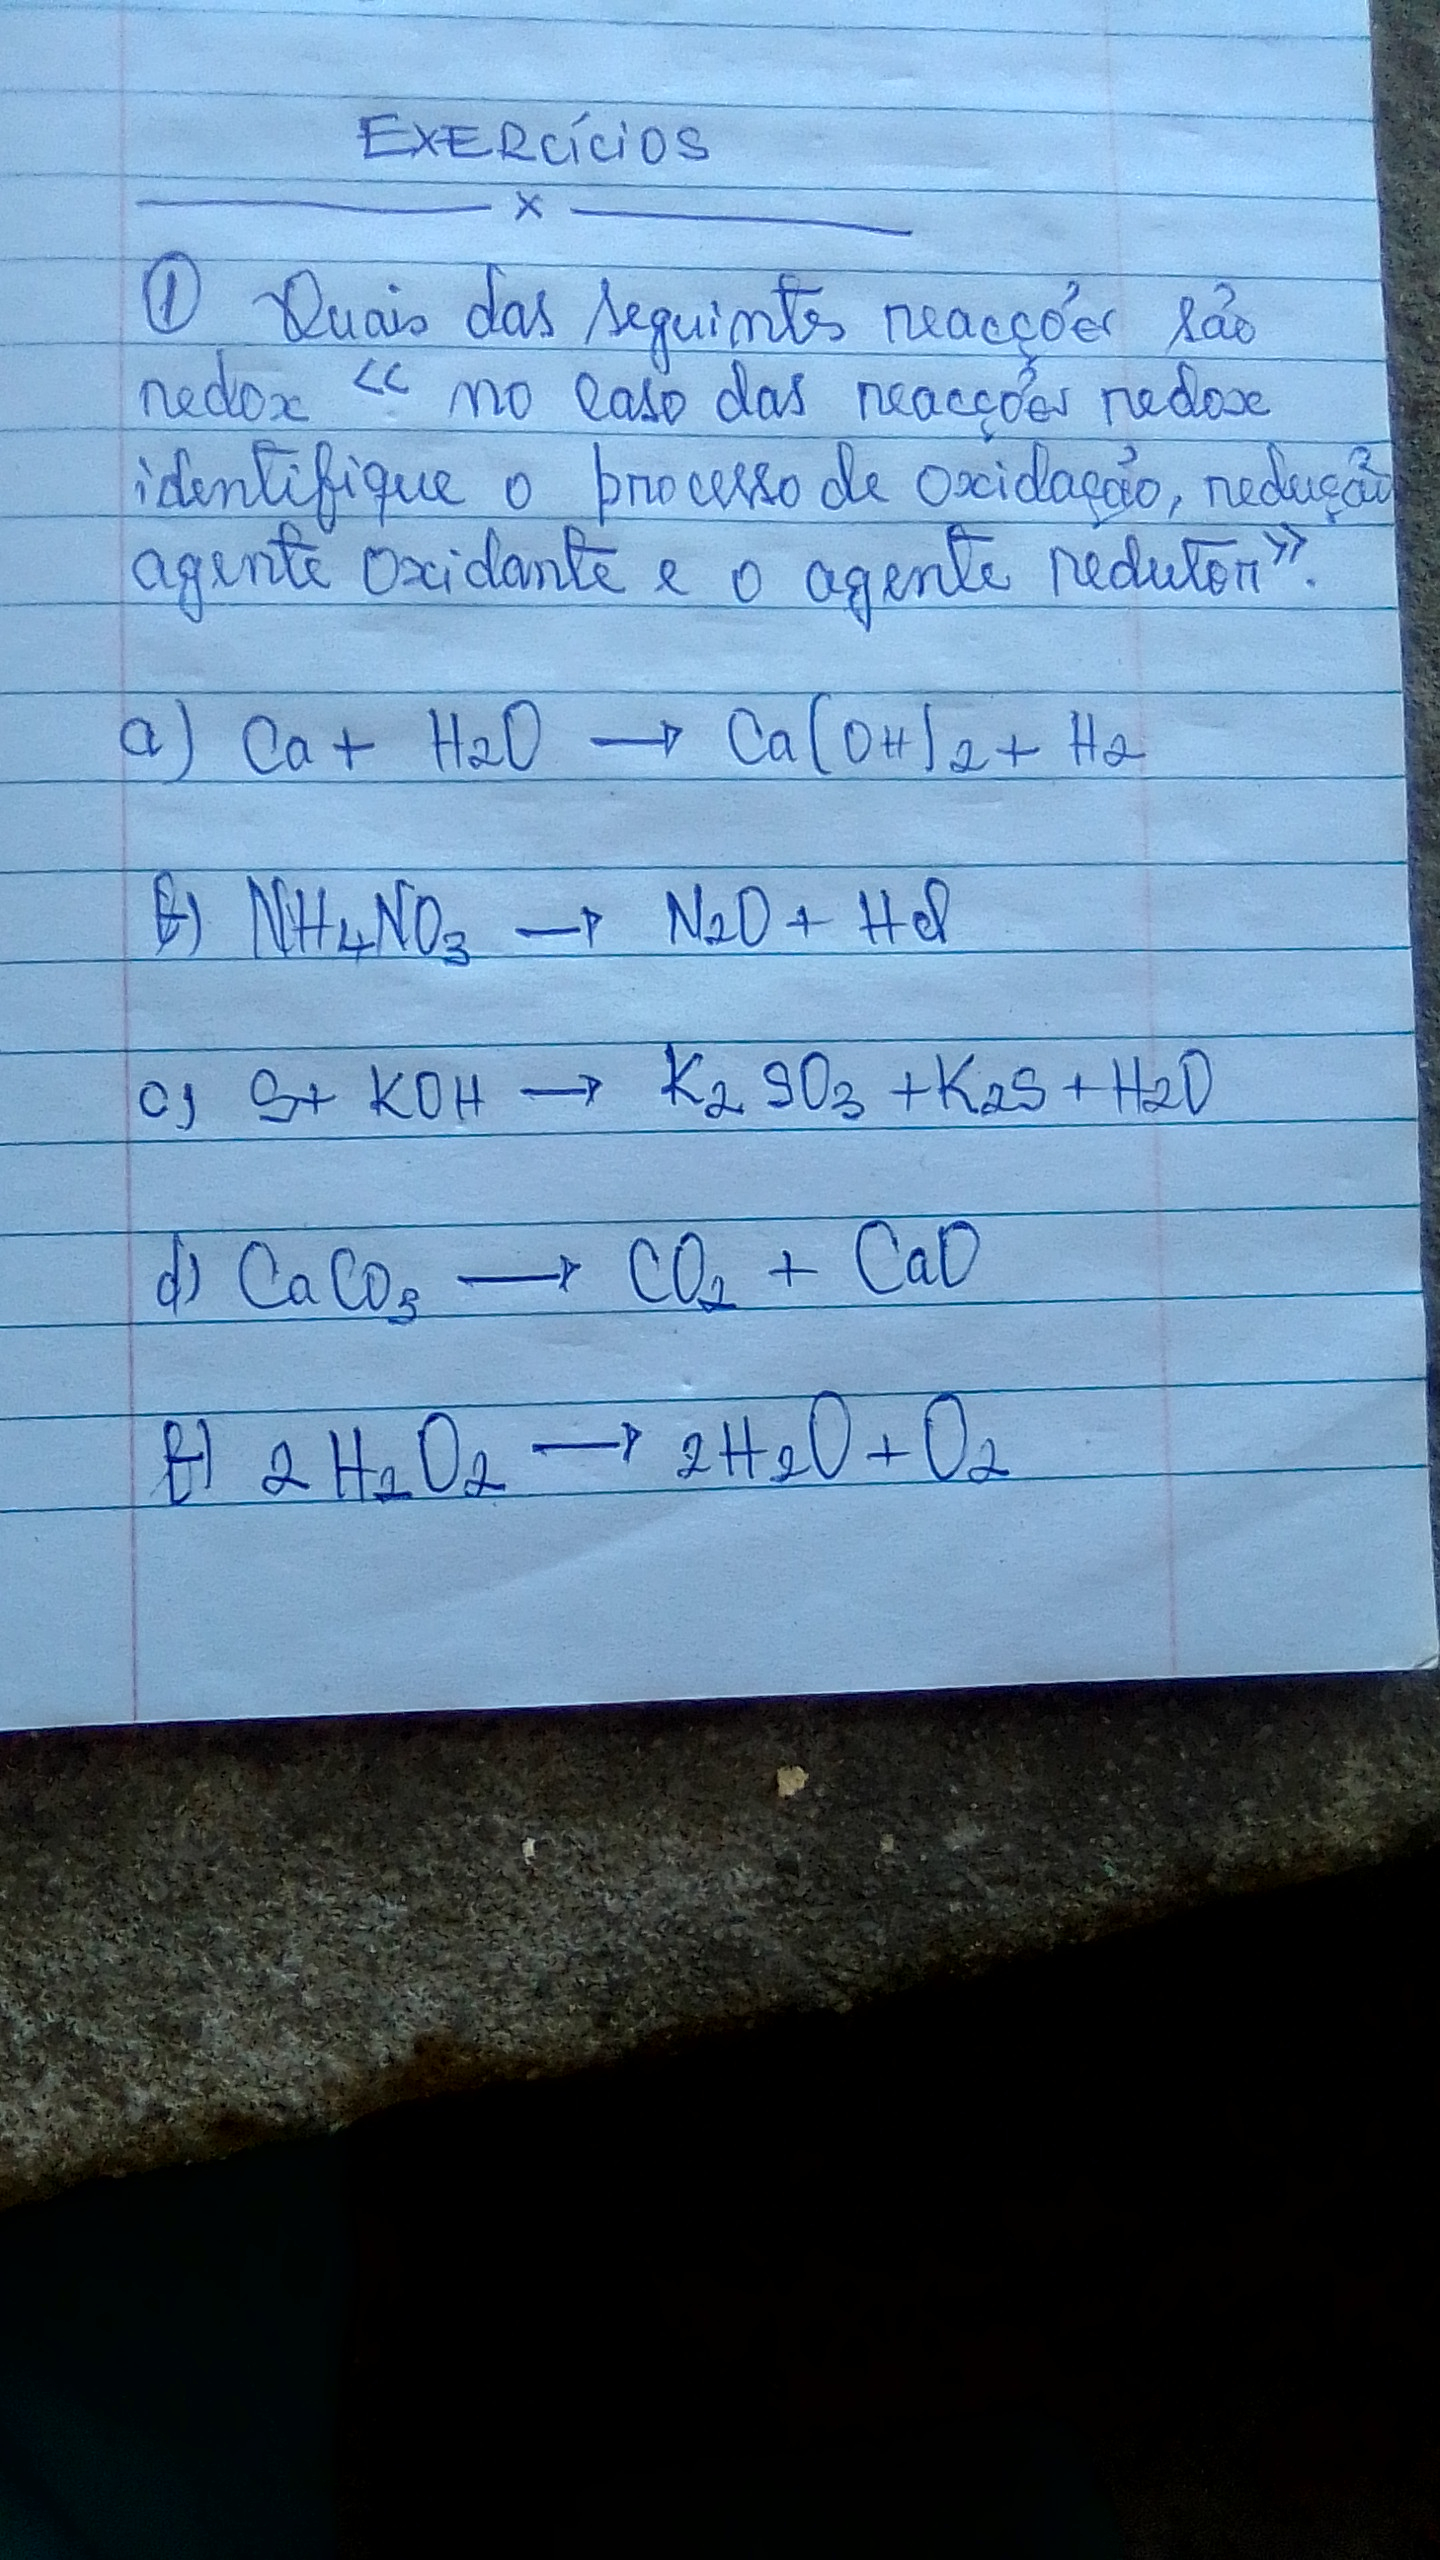 EXERCÍCIOS
x
① Quais das seguintes reacções são
redox << no caso das reacções redox
identifique o processo de oxidação, redução
agente oxidante e o agente redutor>>.
a) Ca + H2O → Ca(OH)2 + H2
b) NH4NO3 → N2O + HCl
c) S + KOH → K2SO3 + K2S + H2O
d) CaCO3 → CO2 + CaO
f) 2H2O2 → 2H2O + O2